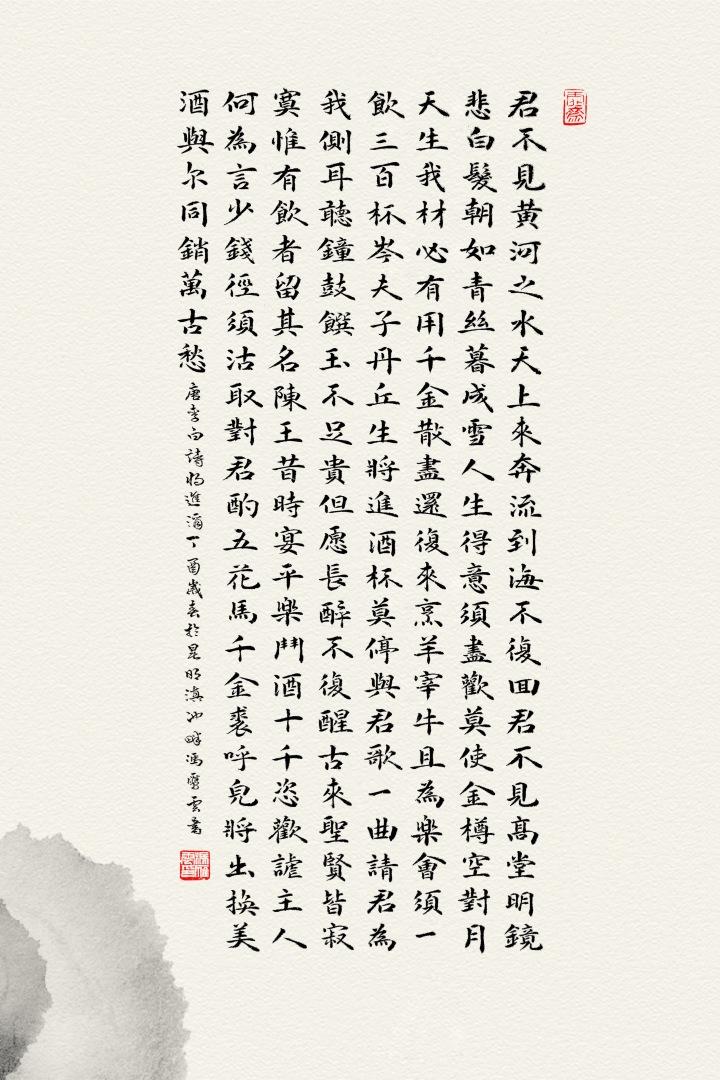 君不見黄河之水天上來奔流到海不復囬君不見髙堂明鏡
悲白髮朝如青絲暮成雪人生得意須盡歡莫使金樽空對月
天生我材必有用千金散盡還復來烹羊宰牛且為樂會須一
飲三百杯岑夫子丹丘生將進酒杯莫停與君歌一曲請君為
我側耳聽鐘鼓饌玉不足貴但愿長醉不復醒古來聖賢皆寂
寞惟有飲者留其名陳王昔時宴平樂鬥酒十千恣歡謔主人
何為言少錢徑須沽取對君酌五花馬千金裘呼兒將出換美
酒與尔同銷萬古愁
唐李白詩將進酒丁酉歲春於昆明滇池畔馮雲書